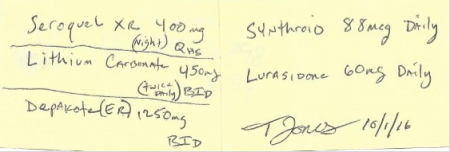 Seroquel XR 400mg
(Night) QHS
Lithium Carbonate 450mg
(twice daily) BID
Depakote (ER) 1250mg
BID
Synthroid 88mcg Daily
Lurasidone 60mg Daily
T Jones 10/1/16